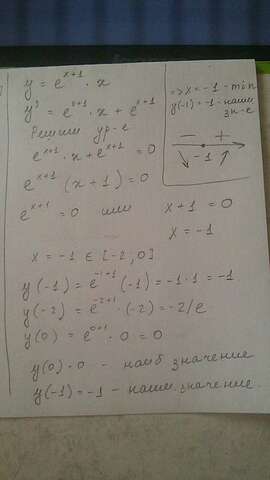 y = e^{x+1} · x
y' = e^{x+1} · x + e^{x+1}
Решим ур-е
e^{x+1} · x + e^{x+1} = 0
e^{x+1} (x+1) = 0
e^{x+1} = 0 или x+1 = 0
x = -1
=> x = -1 - min
y(-1) = -1 - наим
зн-е
- +
-1
x = -1 ∈ [-2, 0]
y(-1) = e^{-1+1} (-1) = -1·1 = -1
y(-2) = e^{-2+1} · (-2) = -2/e
y(0) = e^{0+1} · 0 = 0
y(0) = 0 - наиб значение
y(-1) = -1 - наим значение.